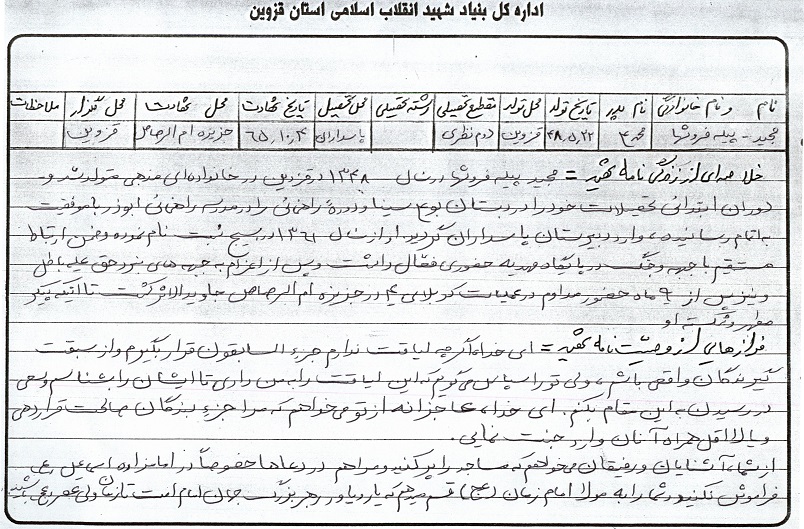 اداره کل بنیاد شهید انقلاب اسلامی استان قزوین
نام و نام خانوادگی نام پدر تاریخ تولد محل تولد مقطع تحصیلی رشته تحصیلی محل تحصیل تاریخ شهادت محل شهادت محل گلزار ملاحظات
مجید - پیله فروشها ۴۸,۵,۲۲ قزوین دوم نظری پاسداران ۶۵,۱۰,۴ جزیره ام الرصاص قزوین
خلاصه‌ای از زندگی نامه شهید = مجید پیله فروشها در سال ۱۳۴۸ در قزوین در خانواده‌ای مذهبی متولد شد و
دوران ابتدائی تحصیلات خود را در دبستان بوعلی سینا و دوره راهنمائی را در مدرسه راهنمائی ابوذر با موفقیت
به اتمام رسانید، وارد دبیرستان پاسداران گردید. او از سال ۱۳۶۱ در بسیج ثبت نام نموده و ضمن ارتباط
مستقیم با جبهه و جنگ در پایگاه مهدیه حضوری فعال داشت و پس از اعزام به جبهه های نبرد حق علیه باطل
و نیز پس از ۹ ماه حضور مداوم در عملیات کربلای ۴ در جزیره ام الرصاص جاوید الاثر گشت تا اینکه پیکر
مطهر او
فرازهایی از وصیت نامه شهید = ای خدا، اگرچه لیاقت ندارم جزء السابقون قرار بگیرم و از سبقت
گیرندگان واقعی باشم، ولی تو را سپاس می‌گویم که این لیاقت را به من دادی تا ایشان را بشناسم و سعی
در رسیدن به این مقام بکنم. ای خدا، عاجزانه از تو می‌خواهم که مرا جزء بندگان صالحت قرار دهی
و یا لااقل همراه آنان وارد جنت نمایی.
از شما، آشنایان و رفیقان می‌خواهم که مساجد را پر کنید و مرا هم در دعاها خصوصاً در امامزاده اسماعیل
فراموش نکنید و شما را به مولا امام زمان (عج) قسم میدهم که یار و یاور رهبر بزرگ جهان امام امت تا